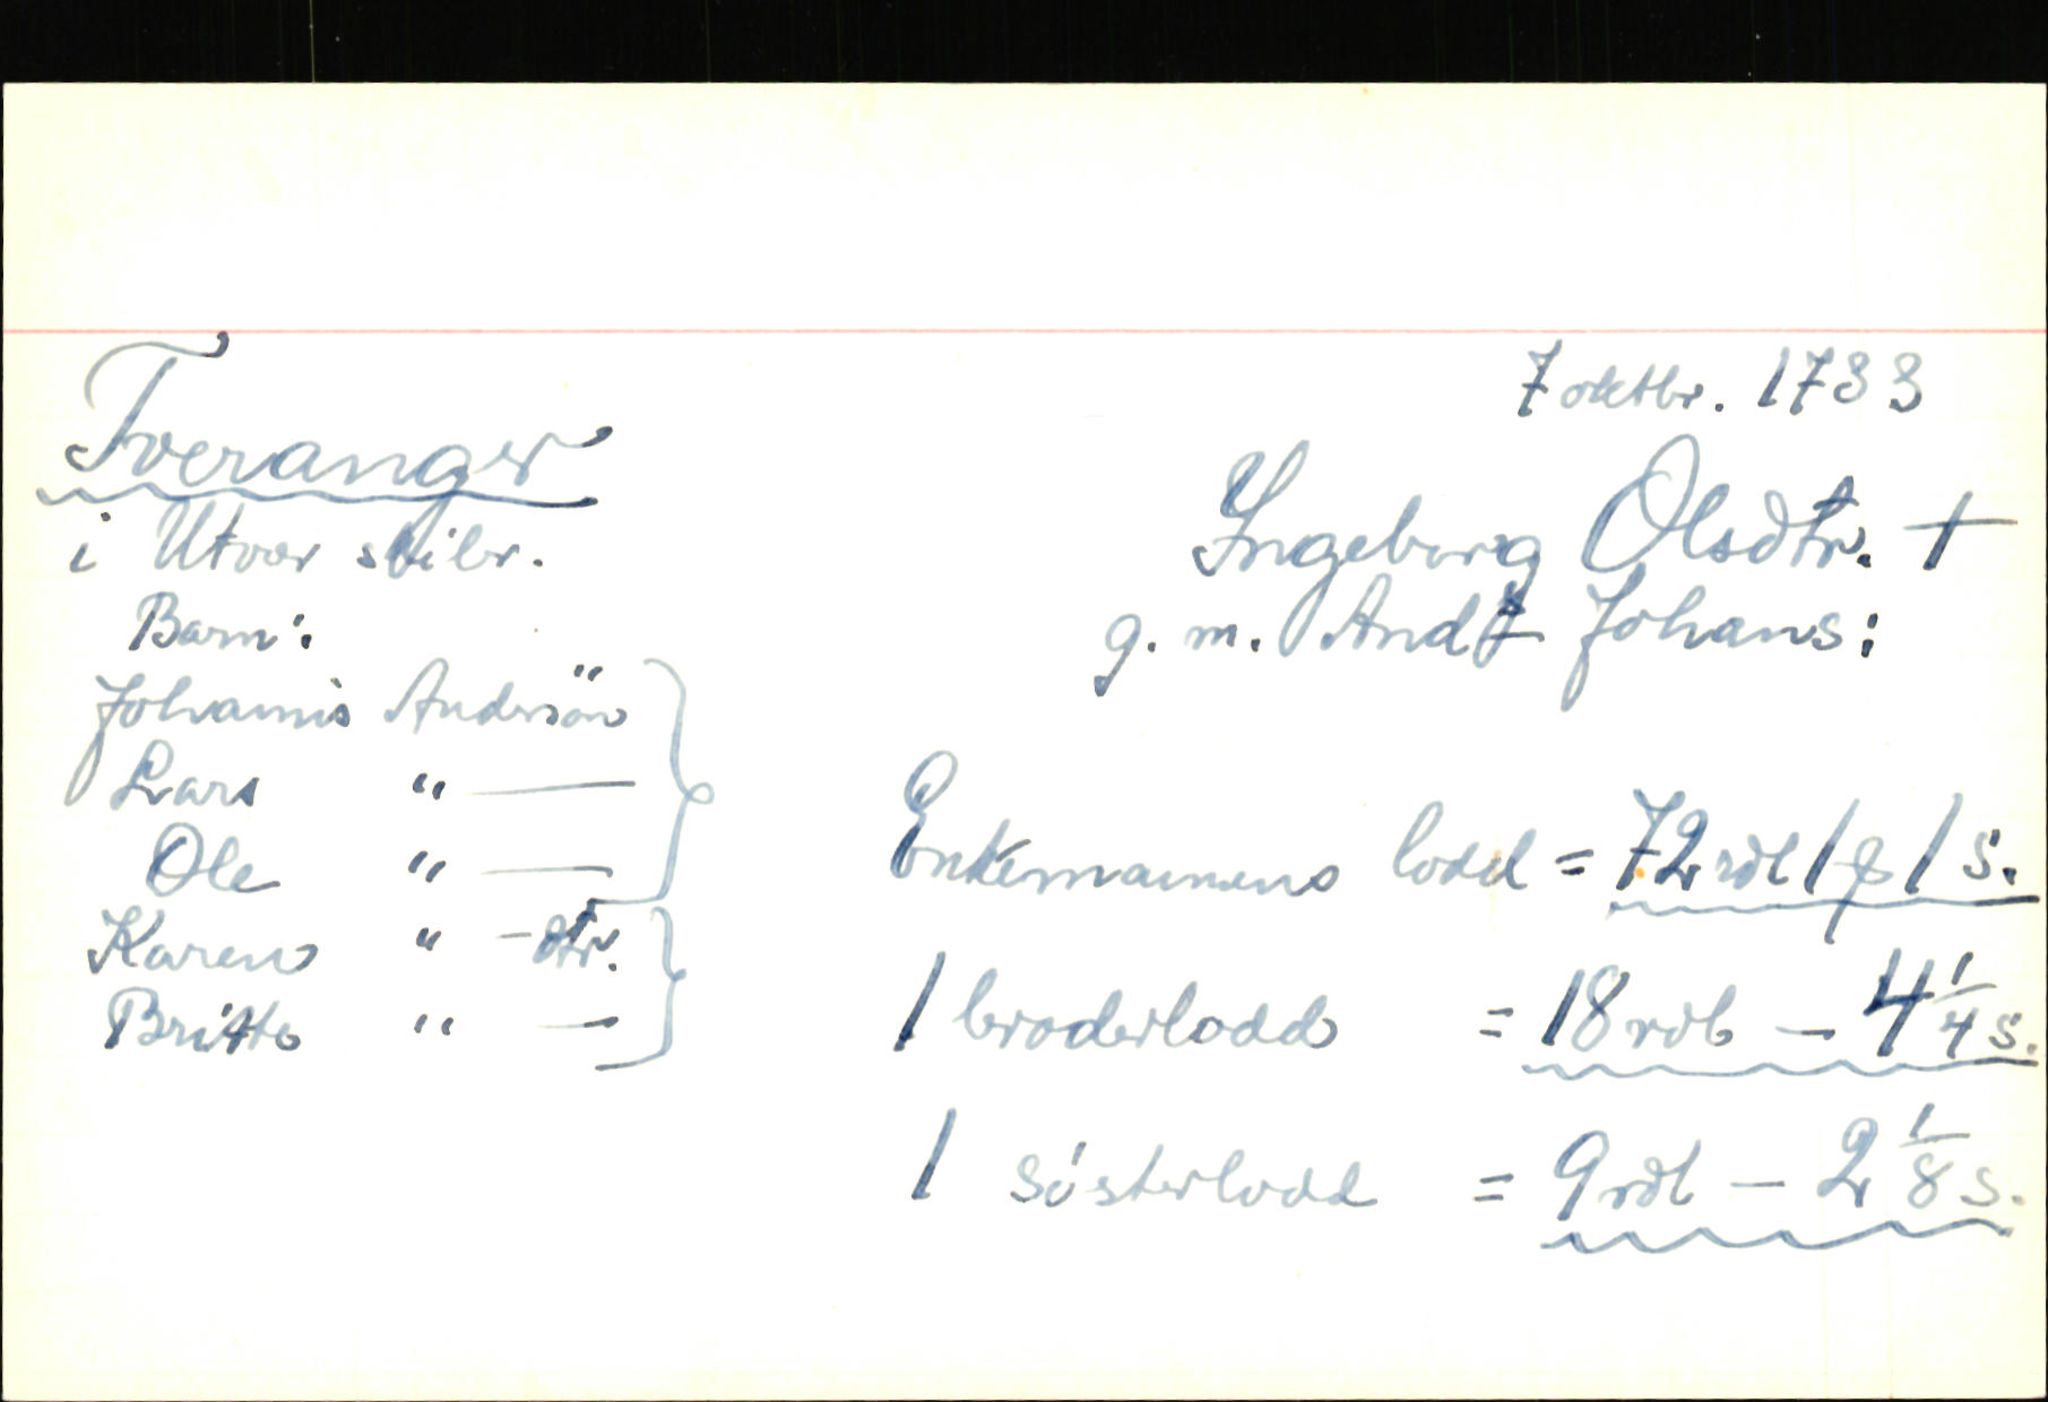 7 oktbr. 1733
Tveranger
i Utvær skibr.
Ingeborg Olsdtr. †
g. m. And? Johans:
Barn:
Johannis Andersön
Lars " —
Ole " —
Karen " - dtr.
Britte " —
Enkemannens lodd = 72 rdl 1 β 1 s.
1 broderlodd = 18 rdl — 4 1/4 s.
1 sösterlodd = 9 rdl — 2 1/8 s.